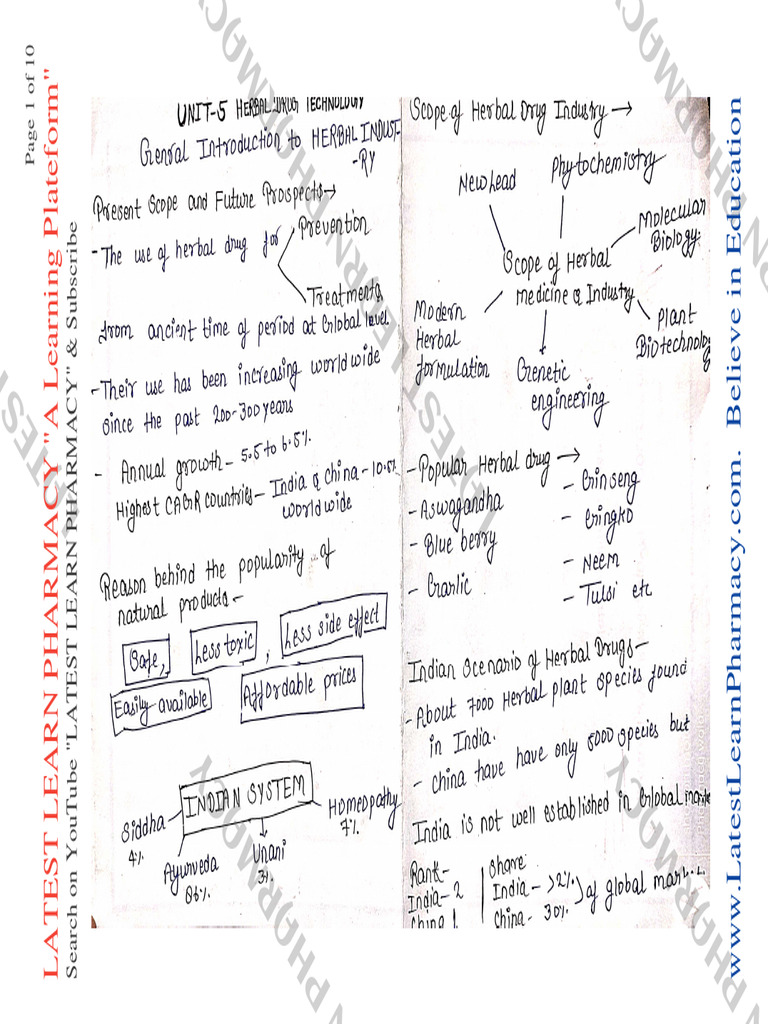 Page 1 of 10
LATEST LEARN PHARMACY "A Learning Plateform"
Search on YouTube "LATEST LEARN PHARMACY" & Subscribe
UNIT-5 HERBAL DRUG TECHNOLOGY
Genral Introduction to HERBAL INDUST-
-RY
Present Scope and Future Prospects→
- The use of herbal drug for
Prevention
Treatments
from ancient time of period at Global level
- Their use has been increasing worldwide
since the past 200-300 years
- Annual growth - 5.5 to 6.5%
Highest CAGR countries - India & China - 10.5%
worldwide
Reason behind the popularity of
natural products -
Safe,
Less toxic,
Less side effect
Easily available
Affordable prices
INDIAN SYSTEM
Siddha
4%
Ayurveda
86%
Unani
3%
Homeopathy
7%
Scope of Herbal Drug Industry →
New Lead
Phytochemistry
Molecular
Biology
Scope of Herbal
Medicine & Industry
Modern
Herbal
formulation
Genetic
engineering
Plant
Biotechnology
- Popular Herbal drug →
- Aswagandha
- Blue berry
- Garlic
- Ginseng
- Gingko
- Neem
- Tulsi etc
Indian Scenario of Herbal Drugs -
- About 7000 Herbal plant species found
in India.
- China have have only 5000 species but
India is not well established in Global market
Rank-
India-2
China 1
Share
India - >2%
China - 30%
of global mark
www.LatestLearnPharmacy.com. Believe in Education
LATEST LEARN PHARMACY